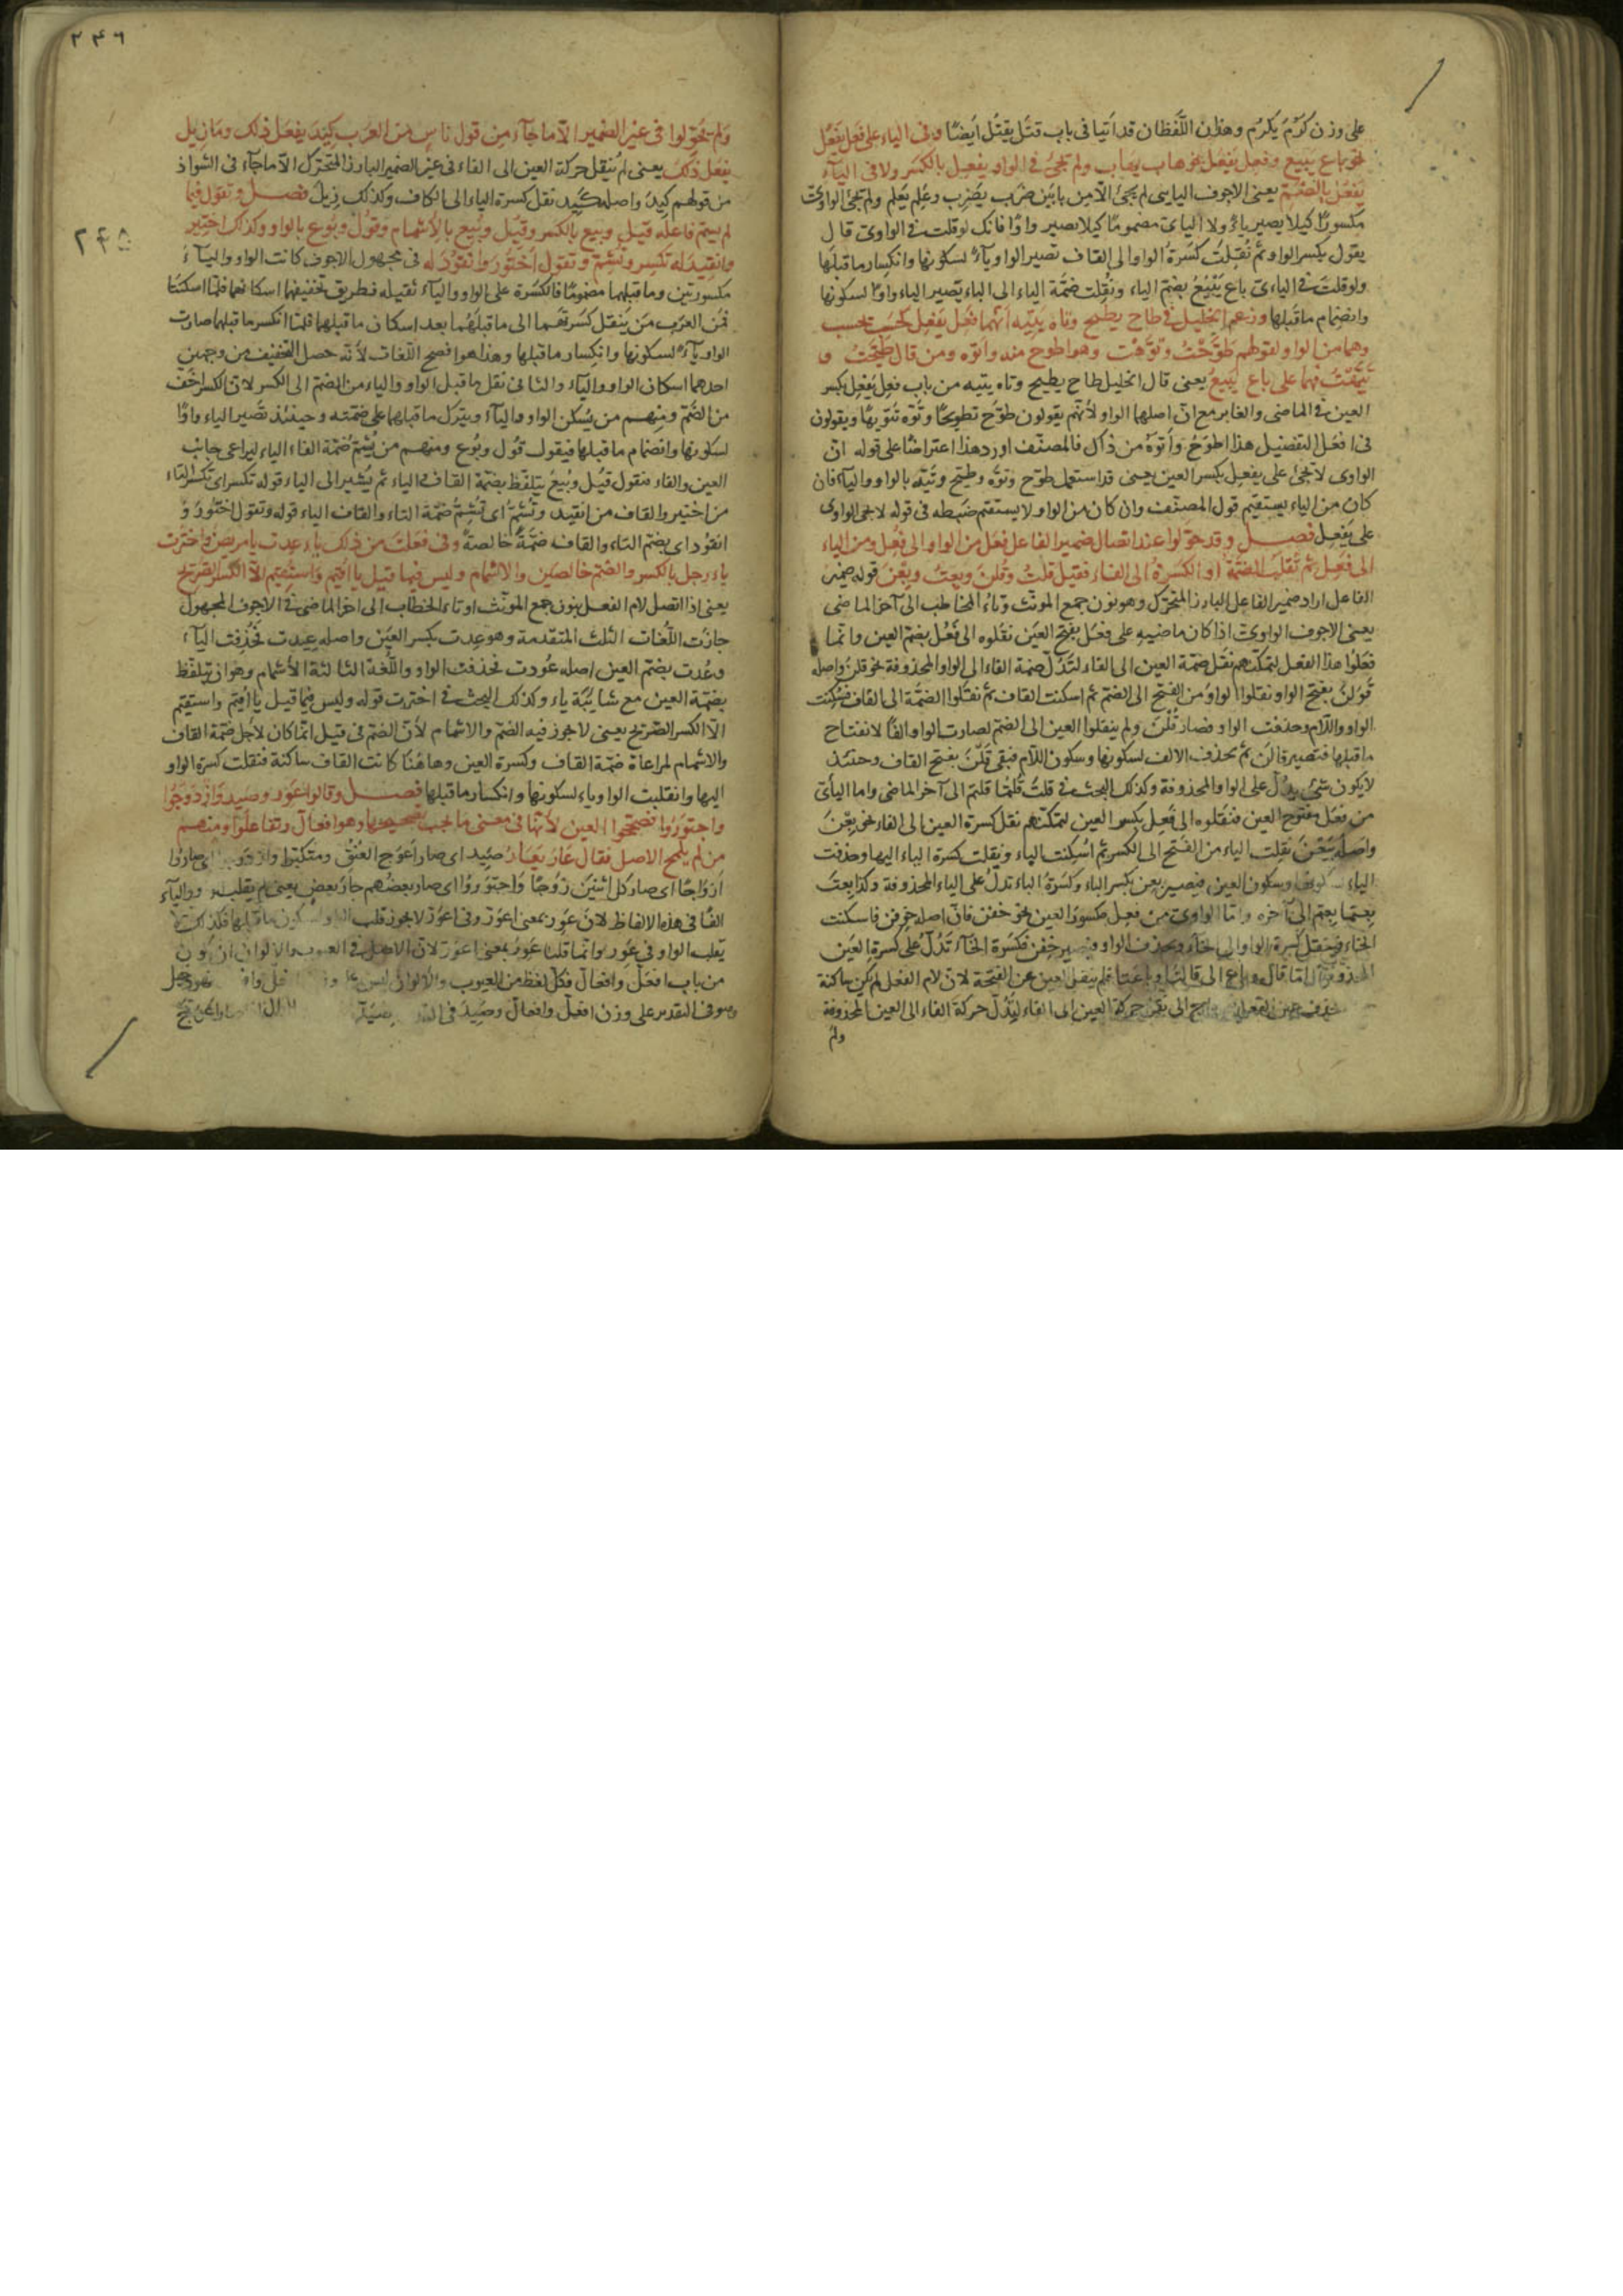 على وزن كَرُمَ يكرُم وهذان اللّفظان قد اَتيا فى باب قتَل يقتل ايضًا وفى الياء على فعَل يَفعِل
نحو باع يَبيع وفعِل يَفعَل نحو هاب يهاب ولم يجئ فى الواو يفعِل بالكسر ولا فى اليآء
يَفعُل بالضّم يعنى الاجوف اليايى لم يجئ الّا من بابَين ضرَب يضرِب وعلِم يعلَم ولم يجئ الواوىّ
مكسورًا كيلا يصير ياءً ولا اليائ مضمومًا كيلا يصير واوًا فانك لو قلت فى الواوى قال
يقول بكسر الواو ثم نُقِلت كسرَةُ الواو الى القاف تصير الواو يآءً لسكونها وانكسار ما قبلها
ولو قلتَ فى الياءىّ باع يَبْيُعُ بضمّ الياء ونُقِلت ضمّة الياء الى الباء يصير الياء واوًا لسكونها
وانضمام ما قبلها وزعم الخليل فى طاح يطيح وتاه يتيه انّهما فعِل يفعِل كحسِب يحسِب
وهما من الواو لقولهم طوَّحتُ وتوَّهت وهو اطوح منه واتوه ومن قال طيّحتُ و
تيّهتُ فهما على باع يبيعُ يعنى قال الخليل طاح يطيح وتاه يتيه من باب فعِل يَفعِل بكسر
العين فى الماضى والغابر مع انّ اصلها الواو لانّهم يقولون طوّح تطويحًا وتوّه تتويهًا ويقولون
فى افعَل التفضيل هذا اطوَحُ واَتوَهُ من ذاك فالمصنّف اورد هذا اعتراضًا على قوله انّ
الواوى لا يجئ على يفعِل بكسر العين يعنى قد استعمل طوّح وتوّه وطيّح وتيّه بالواو واليآء فان
كان من الياء يستقيم قول المصنّف وان كان من الواو لا يستقيم ضبطه فى قوله لا يجئ الواوى
على يَفعِل فصل وقد حوّلوا عند اتصال ضمير الفاعل فعَل من الواو الى فعُل ومن الياء
الى فعِل ثم نُقلت الضمّة او الكسرة الى الفاء فقيل قلتُ وقُلنَ وبِعتُ وبِعْنَ قوله ضمير
الفاعل اراد ضمير الفاعل البارز المتحرّك وهو نون جمع المونّث وتاءُ المخاطب الى آخر الماضى
يعنى الاجوف الواوىّ اذا كان ماضيه على فعَل بفتح العين نقلوه الى فَعُل بضمّ العين وانّما
فعَلُوا هذا الفعل ليمكّنهم نقل ضمّة العين الى الفاء لتدُلّ ضمة الفاء الى الواو المحذوفة نحو قلنَ واصله
قوَلنَ بفتح الواو نقلوا الواوَ من الفتح الى الضّم ثم اسكنت القاف ثم نقلوا الضمّة الى القاف فسُكنت
الواو واللّام وحذفت الواو فصار قُلنَ ولم ينقلوا العين الى الضم لصارت الواو الفًا لانفتاح
ما قبلها فتصير قالن ثم يحذف الالف لسكونها وسكون اللّام فبقى قَلنَ بفتح القاف وحنئذ
لا يكون شئ يدلّ على الواو المحذوفة وكذلك البحث فى قلتُ قلتما قلتم الى آخر الماضى واما اليائىّ
من فعَل مفتوح العين فنقلوه الى فَعِل بكسر العين ليمكّنهم نقل كسرة العين الى الفاء نحو بِعْنَ
واصله بَيَعْنَ نقلت الياء من الفتح الى الكسر ثم اُسكِنت الباء ونقلت كسرة الياء اليها وحذفت
الياء لسكونها وسكون العين فيصير بِعن بكسر الباء وكسرَةُ الباء تدلّ على الياء المحذوفة وكذا بِعتُ
بِعتما بِعتم الى آخره وامّا الواوى من فعِل مكسورُ العين نحو خفن فانّ اصله خوِفن فاسكنت
الخاء فنقل كسرة الواو الى الخآء ويحذف الواو فيصير خِفن فكسرَة الخآء تدُلّ على كسرة العين
المحذوفة امّا قال وباع الى قالتا وباعتا فلم ينقل العين عن الفتحة لانّ لام الفعل لم يكن ساكنة
عين الفعل الى نقل حركة العين الى الفاء ليدُلّ حركة الفاء الى العين المحذوفة
ولم
٢٤٦
ولم يحوّلوا فى غير الضمير الّا ما جآء من قول ناسٍ من العرَب كِيدَ يفعَل ذلك وما زِيل
يفعَل ذلك يعنى لم يُنقل حركة العين الى الفاء فى غير الضمير البارز المتحرّك الّا ما جآء فى الشواذ
من قولهم كِيدَ واصله كَيِد نقل كسرة الياء الى الكاف وكذلك زِيلَ فصل وتقول فيما
٢٤٥
لم يسمّ فاعله قيل وبيع بالكسر وقيُل وبُيع بالاشمام وقُول وبُوع بالواو وكذلك اختير
وانقيد له تكسر وتُشِمّ وتقول اختُورَ وانقُودَ له فى مجهول الاجوف كانت الواو واليآءُ
مكسورتين وما قبلهما مضمومًا فالكسرة على الواو واليآء ثقيلة فطريق تخفيفهما اسكانهما فلمّا اسكنَتا
فمن العرَب من يَنقل كسرتهما الى ما قبلهُما بعد اسكان ما قبلهما فلمّا انكسر ما قبلهما صارت
الواو يآءً لسكونها وانكسار ما قبلها وهذا هو افصح اللّغات لانّه حصل التخفيف من وجهين
احدهما اسكان الواو واليآء والثانى نقل ما قبل الواو والياء من الضمّ الى الكسر لانّ الكسر اخفّ
من الضّمّ ومنهم من يُسكن الواو واليآء ويترك ما قبلها على ضمّته وحينئذ تصير الياء واوًا
لسكونها وانضمام ما قبلها فيقول قُول وبُوع ومنهم من يُشِمّ ضمّة الفاء الياء ليراعى جانب
العين والفاء فنقول قيُل وبُيعُ يتلفّظ بضمّة القاف والباء ثم يُشير الى الياء قوله تكسر اى تكسر التاء
من اختير والقاف من انقيد وتُشِمّ اى تُشِمُّ ضمّة التاء والقاف الياء قوله وتقول اختُورَ وَ
انقُود اى بضمّ التاء والقاف ضمّةً خالصةً وفى فَعَلتَ من ذلك يآء عِدت يا مريض واخترت
ياء رجل بالكسر والضمّ خالصَين والاشمام وليس فيما قبل يا اقيم واستُقيم الّا الكسر الصّريح
يعنى اذا اتصل لام الفعل بنون جمع المونّث او تاء الخطاب الى اخر الماضى فى الاجوف المجهول
جازت اللّغات الثلث المتقدمة وهو عِدت بكسر العيَن واصله عِيدت فحُذِفت اليآء
وعُدت بضمّ العين اصله عُودت فحذفت الواو واللّغة الثالثة الاشمام وهو ان يتلفّظ
بضمّة العين مع شايبَة ياء وكذلك البحث فى اخترت قوله وليس فيما قبل يا اُقيم واستقيم
الّا الكسر الصّريح يعنى لا يجوز فيه الضمّ والاشمام لانّ الضمّ فى قيل انّما كان لاجل ضمّة القاف
والاشمام لمراعاة ضمّة القاف وكسرة العين وهاهُنَا كانت القاف ساكنة فنقلت كسرة الواو
اليها وانقلبت الواو ياء لسكونها وانكسار ما قبلها فصل وقالوا عَوِر وصَيِد وَازدَوَجُوا
واجتوَرُوا فصحّحوا العين لانّها فى معنى ما يجب تصحيحها وهو افعالّ وتفاعلوا ومنهم
من لم يلمح الاصل فقال عَارَ يَعَار صَيِد اى صار اعوَج العُنُق ومتكبّرا وازدوجوا اى صاروا
اَزوَاجًا اى صار كل اثنين زَوجًا وَاجتوَروُا اى صار بعضُهم جارَ بعض يعنى لم يقلب واو واليآء
الفًا فى هذه الالفاظ لانّ عَوِر بمعنى اعوَرّ وفى اعوَرّ لا يجوز قلب الواو لسكون ما قبلها فكذلك لا
يقلب الواو فى عَوِر وانّما قلنا عوِر بمعنى اعوَرّ لانّ الاصل فى العيوب والالوان ان يكون
من باب افعَلّ وافعالّ فكلّ لفظ من العيوب والالوان ليس على وزن افعلّ وافعالّ
وهو فى التقدير على وزن افعلّ وافعالّ وصَيِدَ